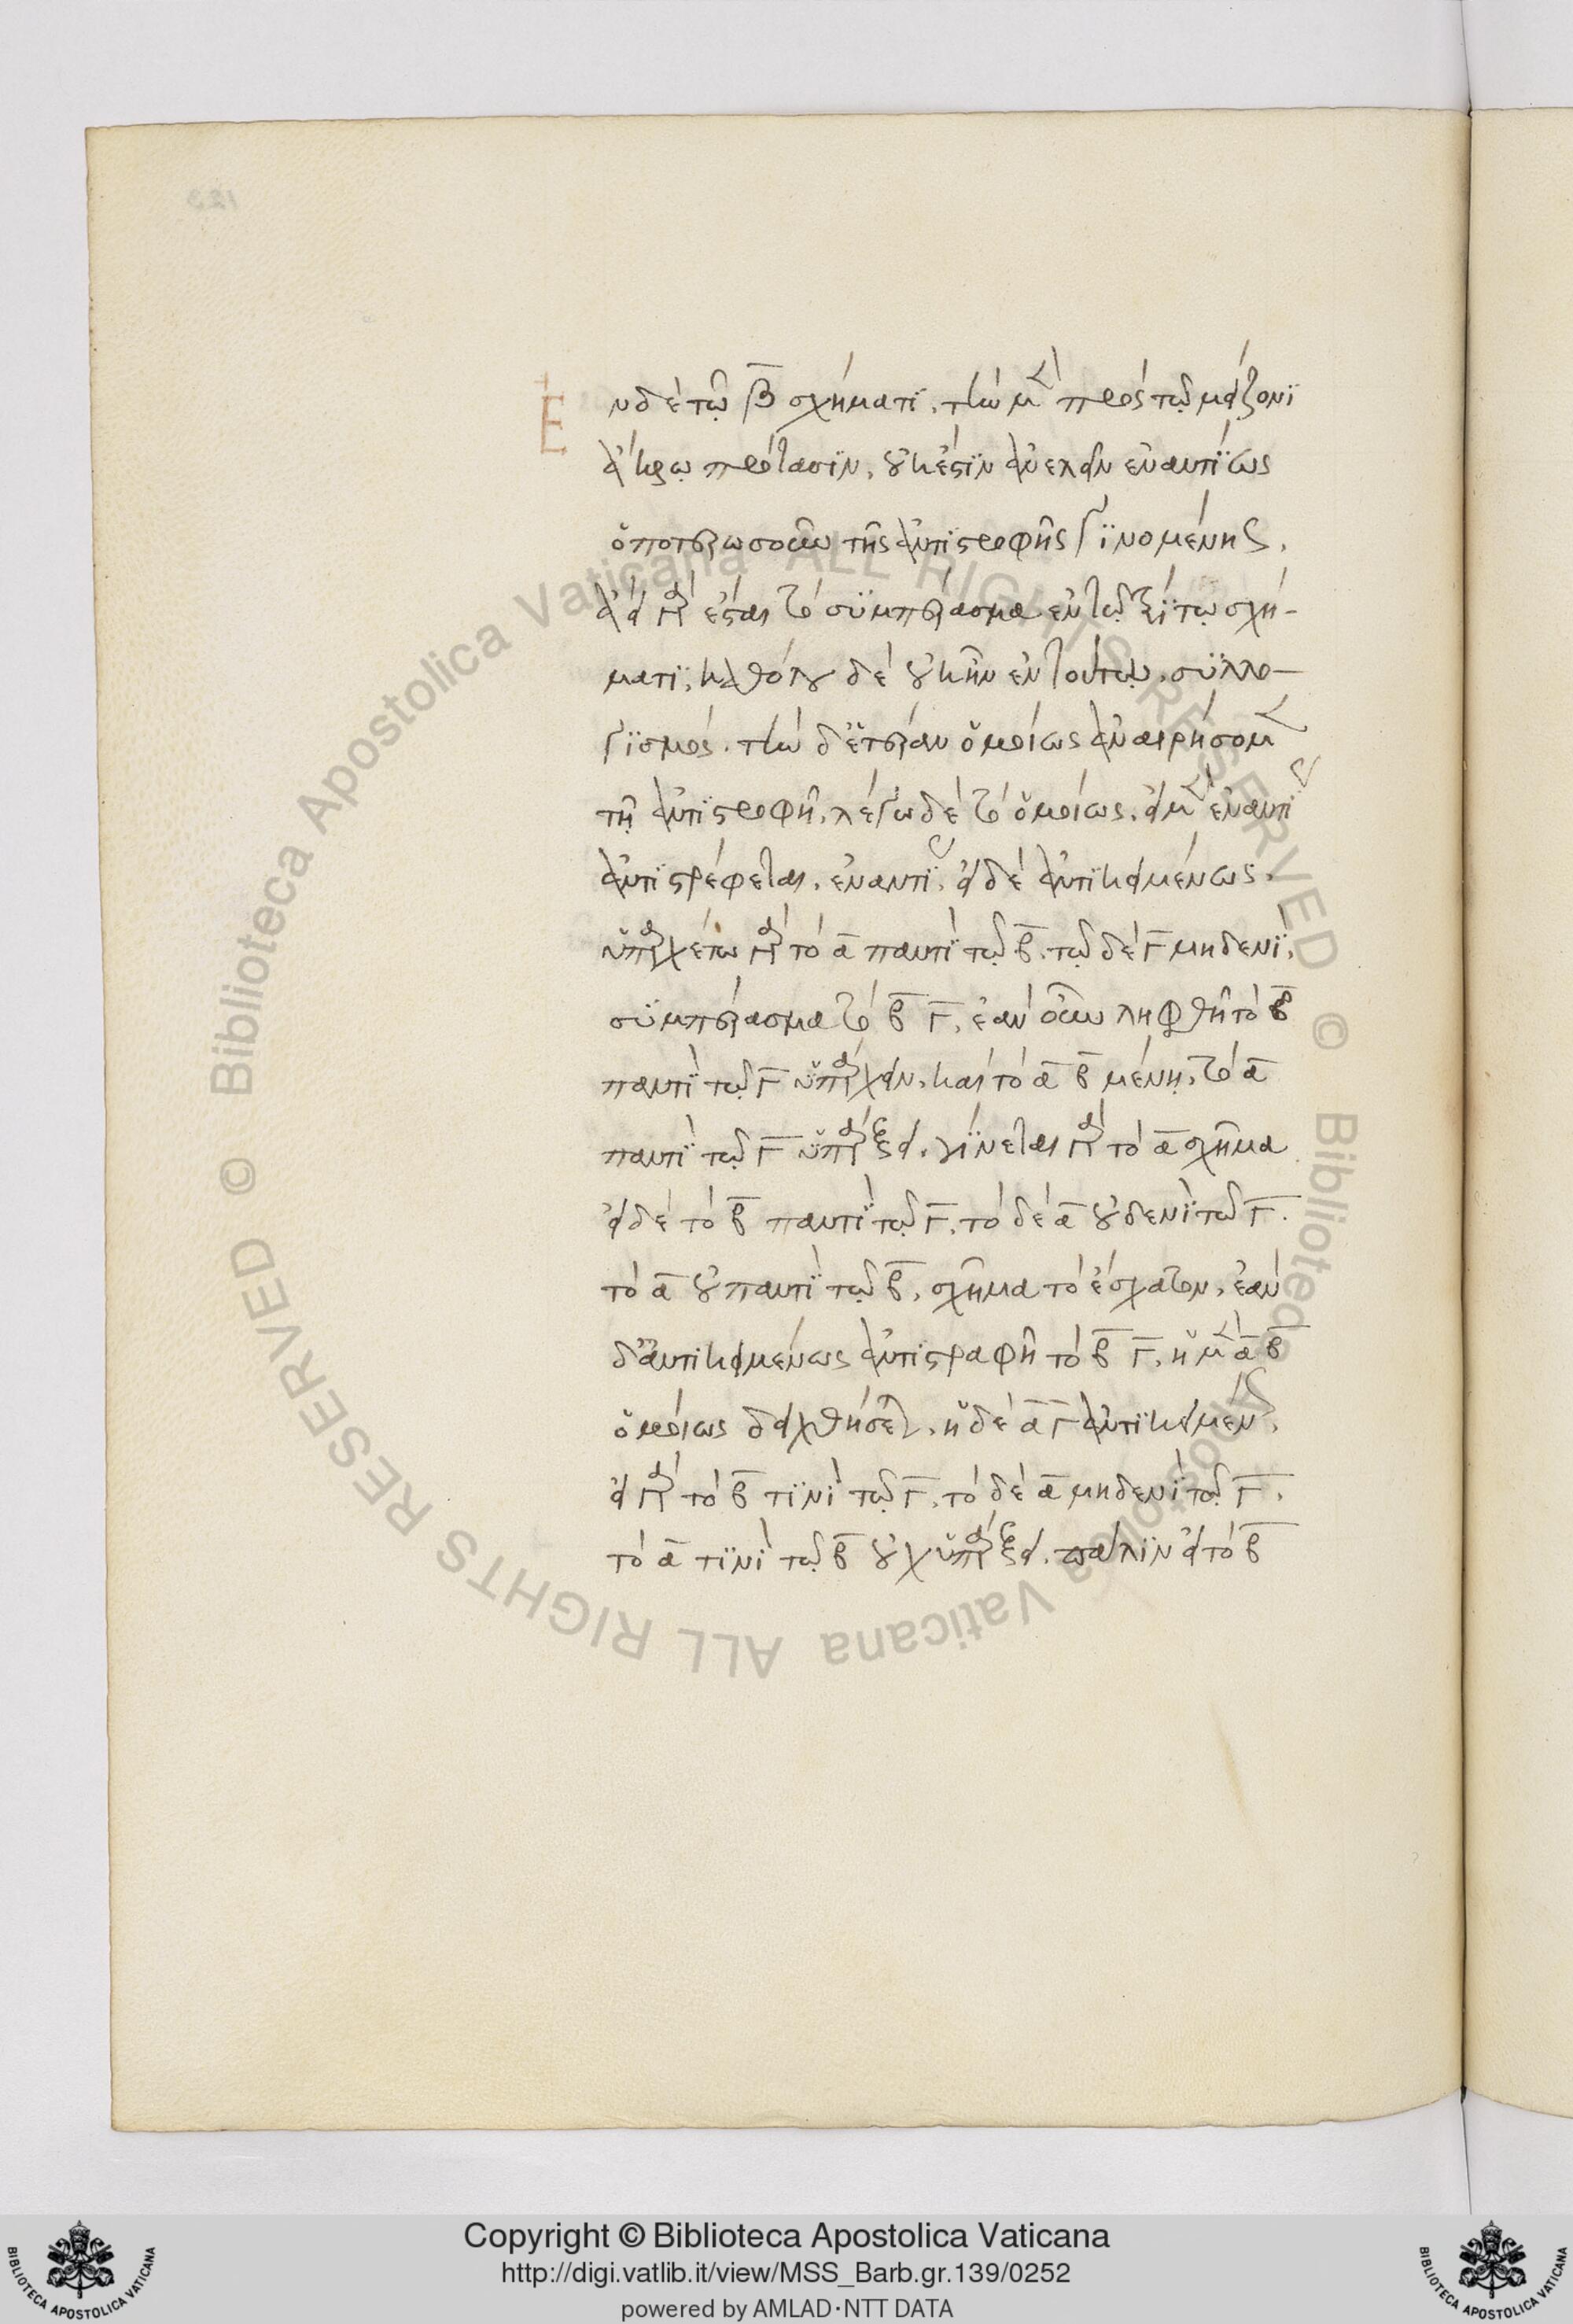 Ἐν δὲ τῷ β̅ σχήματι, τὴν μὲν πρὸς τῷ μείζονι
ἄκρῳ πρότασϊν, οὐκ ἔστϊν ἀνελεῖν ἐναντίως
ὁποτερωσοῦν τῆς ἀντιστροφῆς γϊνομένης,
ἀεὶ γὰρ ἔσται τὸ συμπέρασμα ἐν τῷ τρίτῳ σχή-
ματι, καθόλου δὲ οὐκ ἦν ἐν τούτῳ, συλλο-
γϊσμός. τὴν δ' ἑτέραν ὁμοίως ἀναιρήσομεν
τῇ ἀντιστροφῇ, λέγω δὲ τὸ ὁμοίως, εἰ μὲν ἐναντίως
ἀντιστρέφεται, ἐναντίως, εἰ δὲ ἀντικειμένως,
ὑπαρχέτω γὰρ τὸ α̅ παντὶ τῷ β̅, τῷ δὲ Γ̅ μηδενὶ,
συμπέρασμα τὸ β̅ Γ̅, ἐὰν οὖν ληφθῇ τὸ β̅
παντὶ τῷ Γ̅ ὑπάρχειν, καὶ τὸ α̅ β̅ μένῃ, τὸ α̅
παντὶ τῷ Γ̅ ὑπάρξει, γίνεται γὰρ τὸ α̅ σχῆμα
εἰ δὲ τὸ β̅ παντὶ τῷ Γ̅, τὸ δὲ α̅ οὐδενὶ τῷ Γ̅.
τὸ α̅ οὐ παντὶ τῷ β̅, σχῆμα τὸ ἔσχατον, ἐὰν
δ' ἀντικειμένως ἀντιστραφῇ τὸ β̅ Γ̅, ἡ μὲν α̅ β̅
ὁμοίως δειχθήσεται, ἡ δὲ α̅ Γ̅ ἀντικειμένως,
εἰ γὰρ τὸ β̅ τινὶ τῷ Γ̅, τὸ δὲ α̅ μηδενὶ τῷ Γ̅,
τὸ α̅ τινὶ τῷ β̅ οὐχ ὑπάρξει. πάλϊν εἰ τὸ β̅
© Biblioteca Apostolica Vaticana ALL RIGHTS RESERVED © Biblioteca Apostolica Vaticana ALL RIGHTS RESERVED
Copyright © Biblioteca Apostolica Vaticana
http://digi.vatlib.it/view/MSS_Barb.gr.139/0252
powered by AMLAD·NTT DATA
BIBLIOTECA APOSTOLICA VATICANA
BIBLIOTECA APOSTOLICA VATICANA